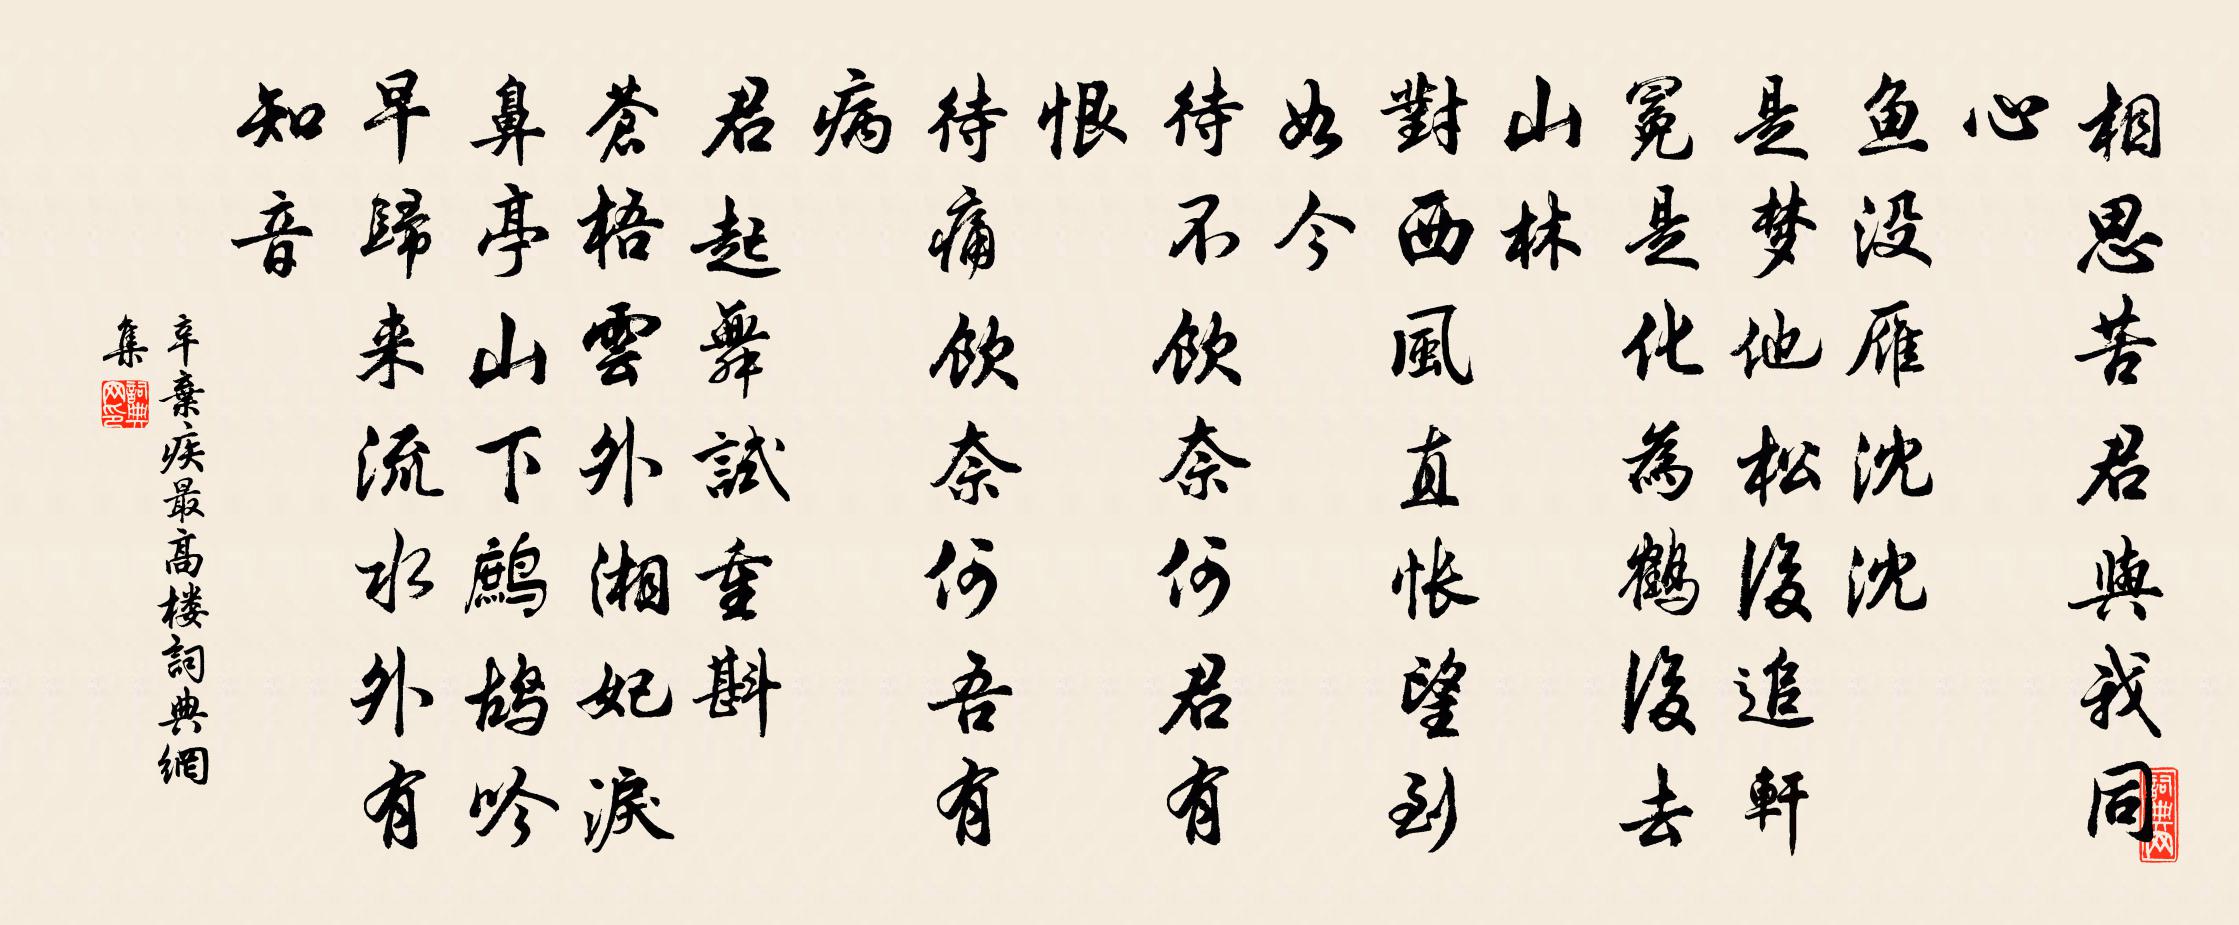 相思苦君與我同
心
鱼没雁沈沈
是梦他松後追軒
冕是化為鶴後去
山林
對西風直悵望到
如今
待不飲奈何君有
恨
待痛飲奈何吾有
病
君起舞試重斟
蒼梧雲外湘妃淚
鼻亭山下鷓鴣吟
早歸来流水外有
知音
辛棄疾最高楼詞典網
集
詞典网
詞典网印